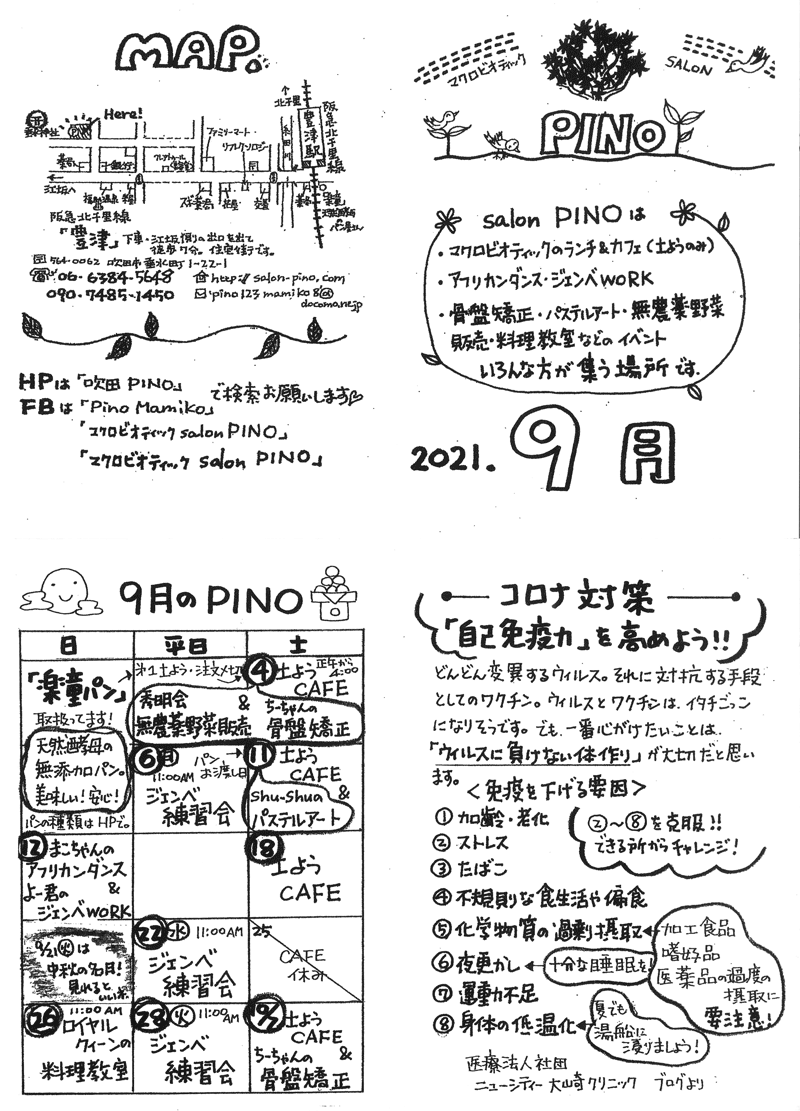 MAP.
↑北千里
阪急北千里線
豊津駅
糸田川
Here!
PINO
ファミリーマート
リフレクソロジー
江坂へ
阪急北千里線
「豊津」下車・江坂側の出口を出て
徒歩7分。住宅街です。
〒564-0062 吹田市垂水町1-22-1
☎06-6384-5648
http://salon-pino.com
090-7485-1450
✉pino123mamiko8@
docomo.ne.jp
HPは「吹田 PINO」
FBは「Pino Mamiko」
で検索お願いします♡
「マクロビオティック salon PINO」
「マクロビオティック salon PINO」
マクロビオティック
SALON
PINO
salon PINO は
・マクロビオティックのランチ&カフェ(土ようのみ)
・アフリカンダンス・ジェンベWORK
・骨盤矯正・パステルアート・無農薬野菜
販売・料理教室などのイベント
いろんな方が集う場所です.
2021. 9月
9月のPINO
日 平日 土
「楽童パン」
取扱ってます!
天然酵母の
無添加パン。
美味しい!安心!
パンの種類はHPで。
第1土よう・注文〆切
秀明会
&
無農薬野菜販売
④土よう
正午から
4:00
CAFE
ちーちゃんの
骨盤矯正
⑥㊊
11:00AM
ジェンベ
練習会
パン
お渡し日
⑪土よう
CAFE
&
Shu-Shuの
パステルアート
⑫まこちゃんの
アフリカンダンス
&
よー君の
ジェンベWORK
⑱
土よう
CAFE
9/21㊋は
中秋の名月!
見れると
いいネ
㉒㊌ 11:00AM
ジェンベ
練習会
25
CAFE
休み
㉖ 11:00AM
ロイヤル
クィーンの
料理教室
㉘㊋ 11:00AM
ジェンベ
練習会
10/2 土よう
CAFE
&
ちーちゃんの
骨盤矯正
コロナ対策
「自己免疫力」を高めよう!!
どんどん変異するウィルス。それに対抗する手段
としてのワクチン。ウィルスとワクチンは、イタチごっこ
になりそうです。でも、一番心がけたいことは、
「ウィルスに負けない体作り」が大切だと思い
ます。
<免疫を下げる要因>
①加齢・老化
②ストレス
③たばこ
④不規則な食生活や偏食
⑤化学物質の過剰摂取
⑥夜更かし
⑦運動不足
⑧身体の低温化
②〜⑧を克服!!
できる所からチャレンジ!
加工食品
嗜好品
医薬品の過度の
摂取に
要注意!
十分な睡眠を!
夏でも
湯船に
浸りましょう!
医療法人社団
ニューシティー大山崎クリニック ブログより